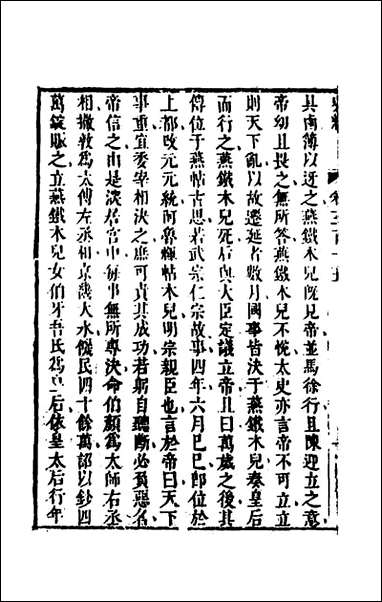 具鹵簿以迓之燕鐵木兒既見帝並馬徐行且陳迎立之意
帝幼且畏之無所答燕鐵木兒不悅太史亦言帝不可立立
則天下亂以故遷延者數月國事皆决于燕鐵木兒奏皇后
而行之燕鐵木兒死后與大臣定議立帝且曰萬歲之後其
傳位于燕帖古思若武宗仁宗故事四年六月己巳卽位於
上都改元元統阿魯輝帖木兒明宗親臣也言於帝曰天下
事重宜委宰相决之庶可責其成功若躬自聽斷必負惡名
帝信之由是深居宮中每事無所專决命伯顏爲太師右丞
相撒敦爲太傅左丞相京畿大水饑民四十餘萬詔以鈔四
萬錠賑之立燕鐵木兒女伯牙吾氏爲皇后依皇太后行年